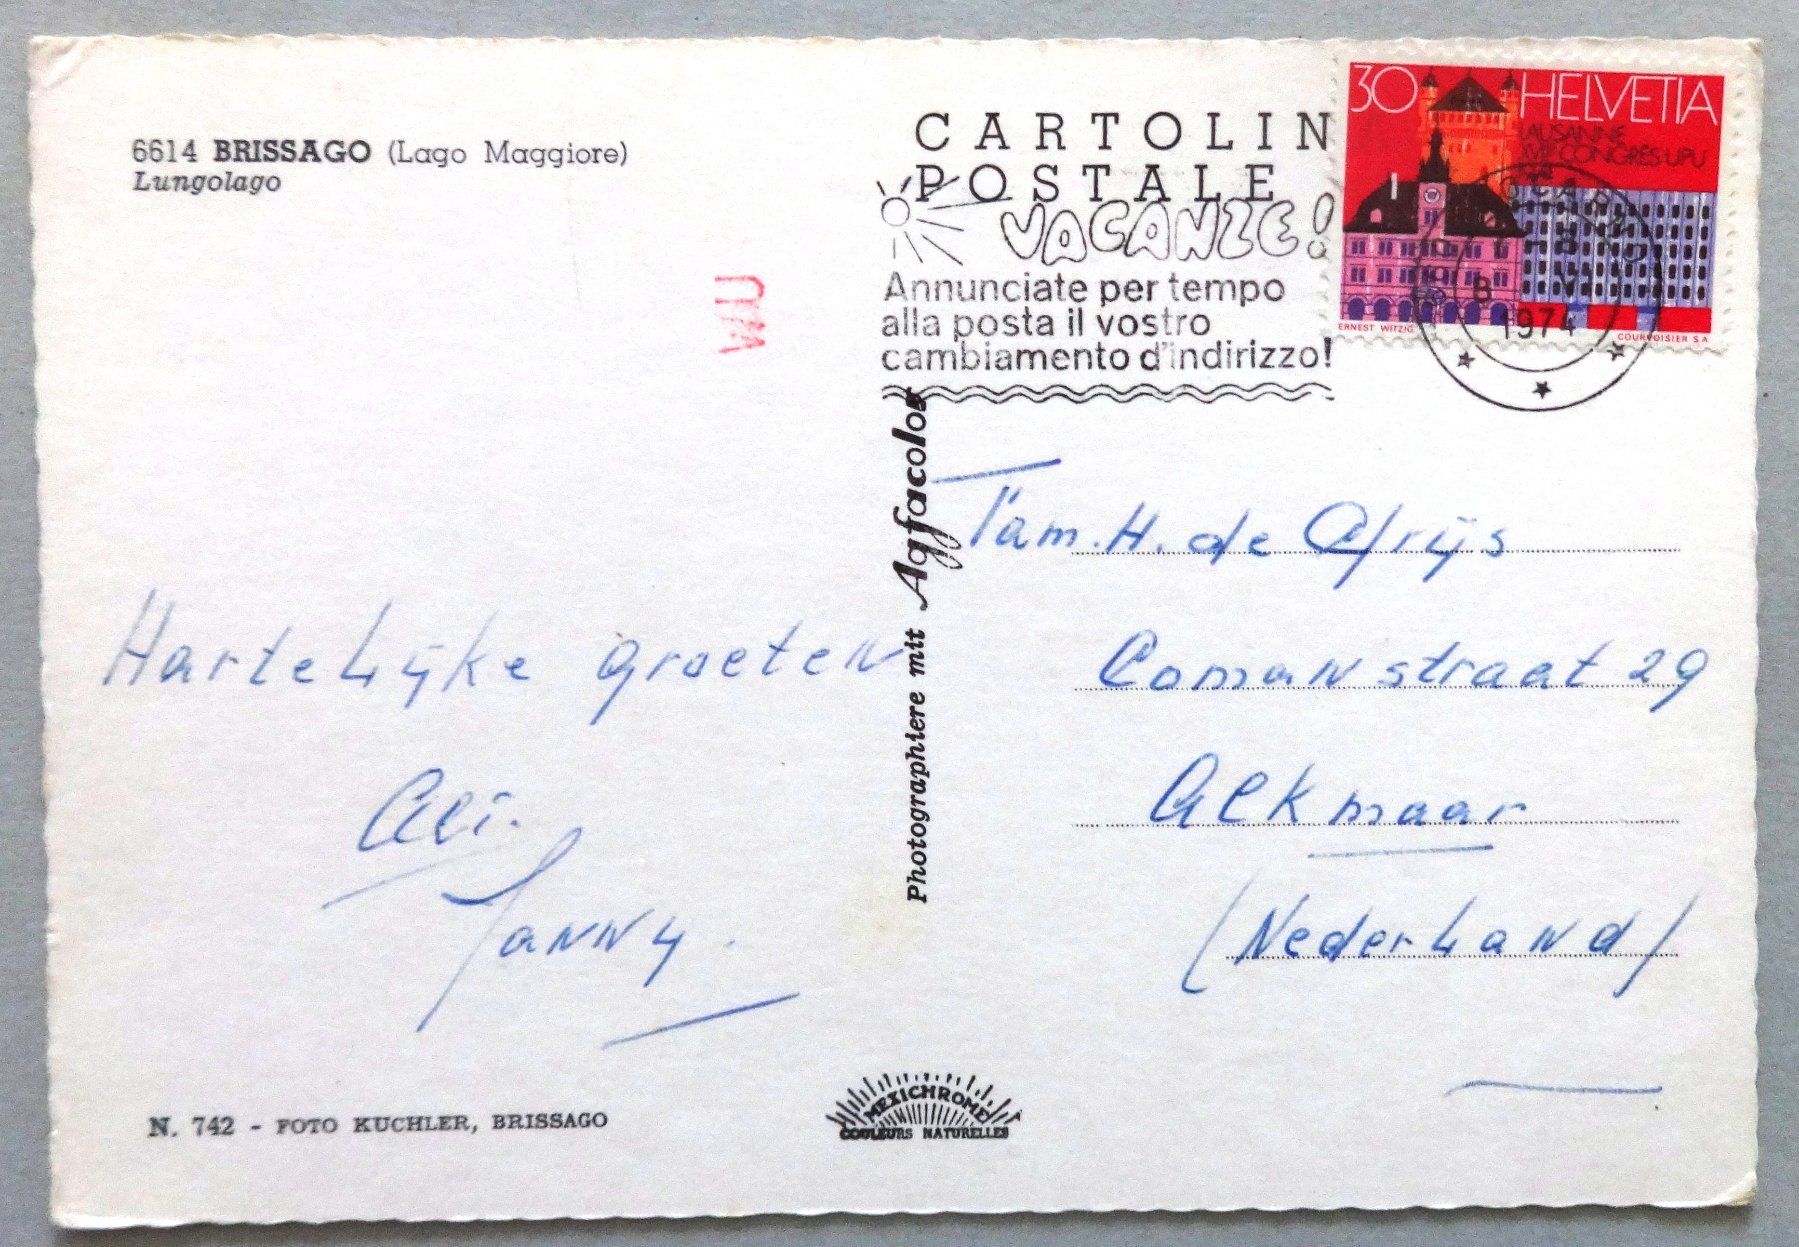 6614 BRISSAGO (Lago Maggiore)
Lungolago
CARTOLIN
POSTALE
VACANZE!
Annunciate per tempo
alla posta il vostro
cambiamento d'indirizzo!
30 HELVETIA
LAUSANNE
XVIIe CONGRÈS UPU
ERNEST WITZIG
COURVOISIER S A
1974
Photographiere mit Agfacolor
Hartelijke groeten
Ali.
Janny.
Fam. H. de Vrijs
Comanstraat 29
Alkmaar
(Nederland)
N. 742 - FOTO KUCHLER, BRISSAGO
MEXICHROME
COULEURS NATURELLES